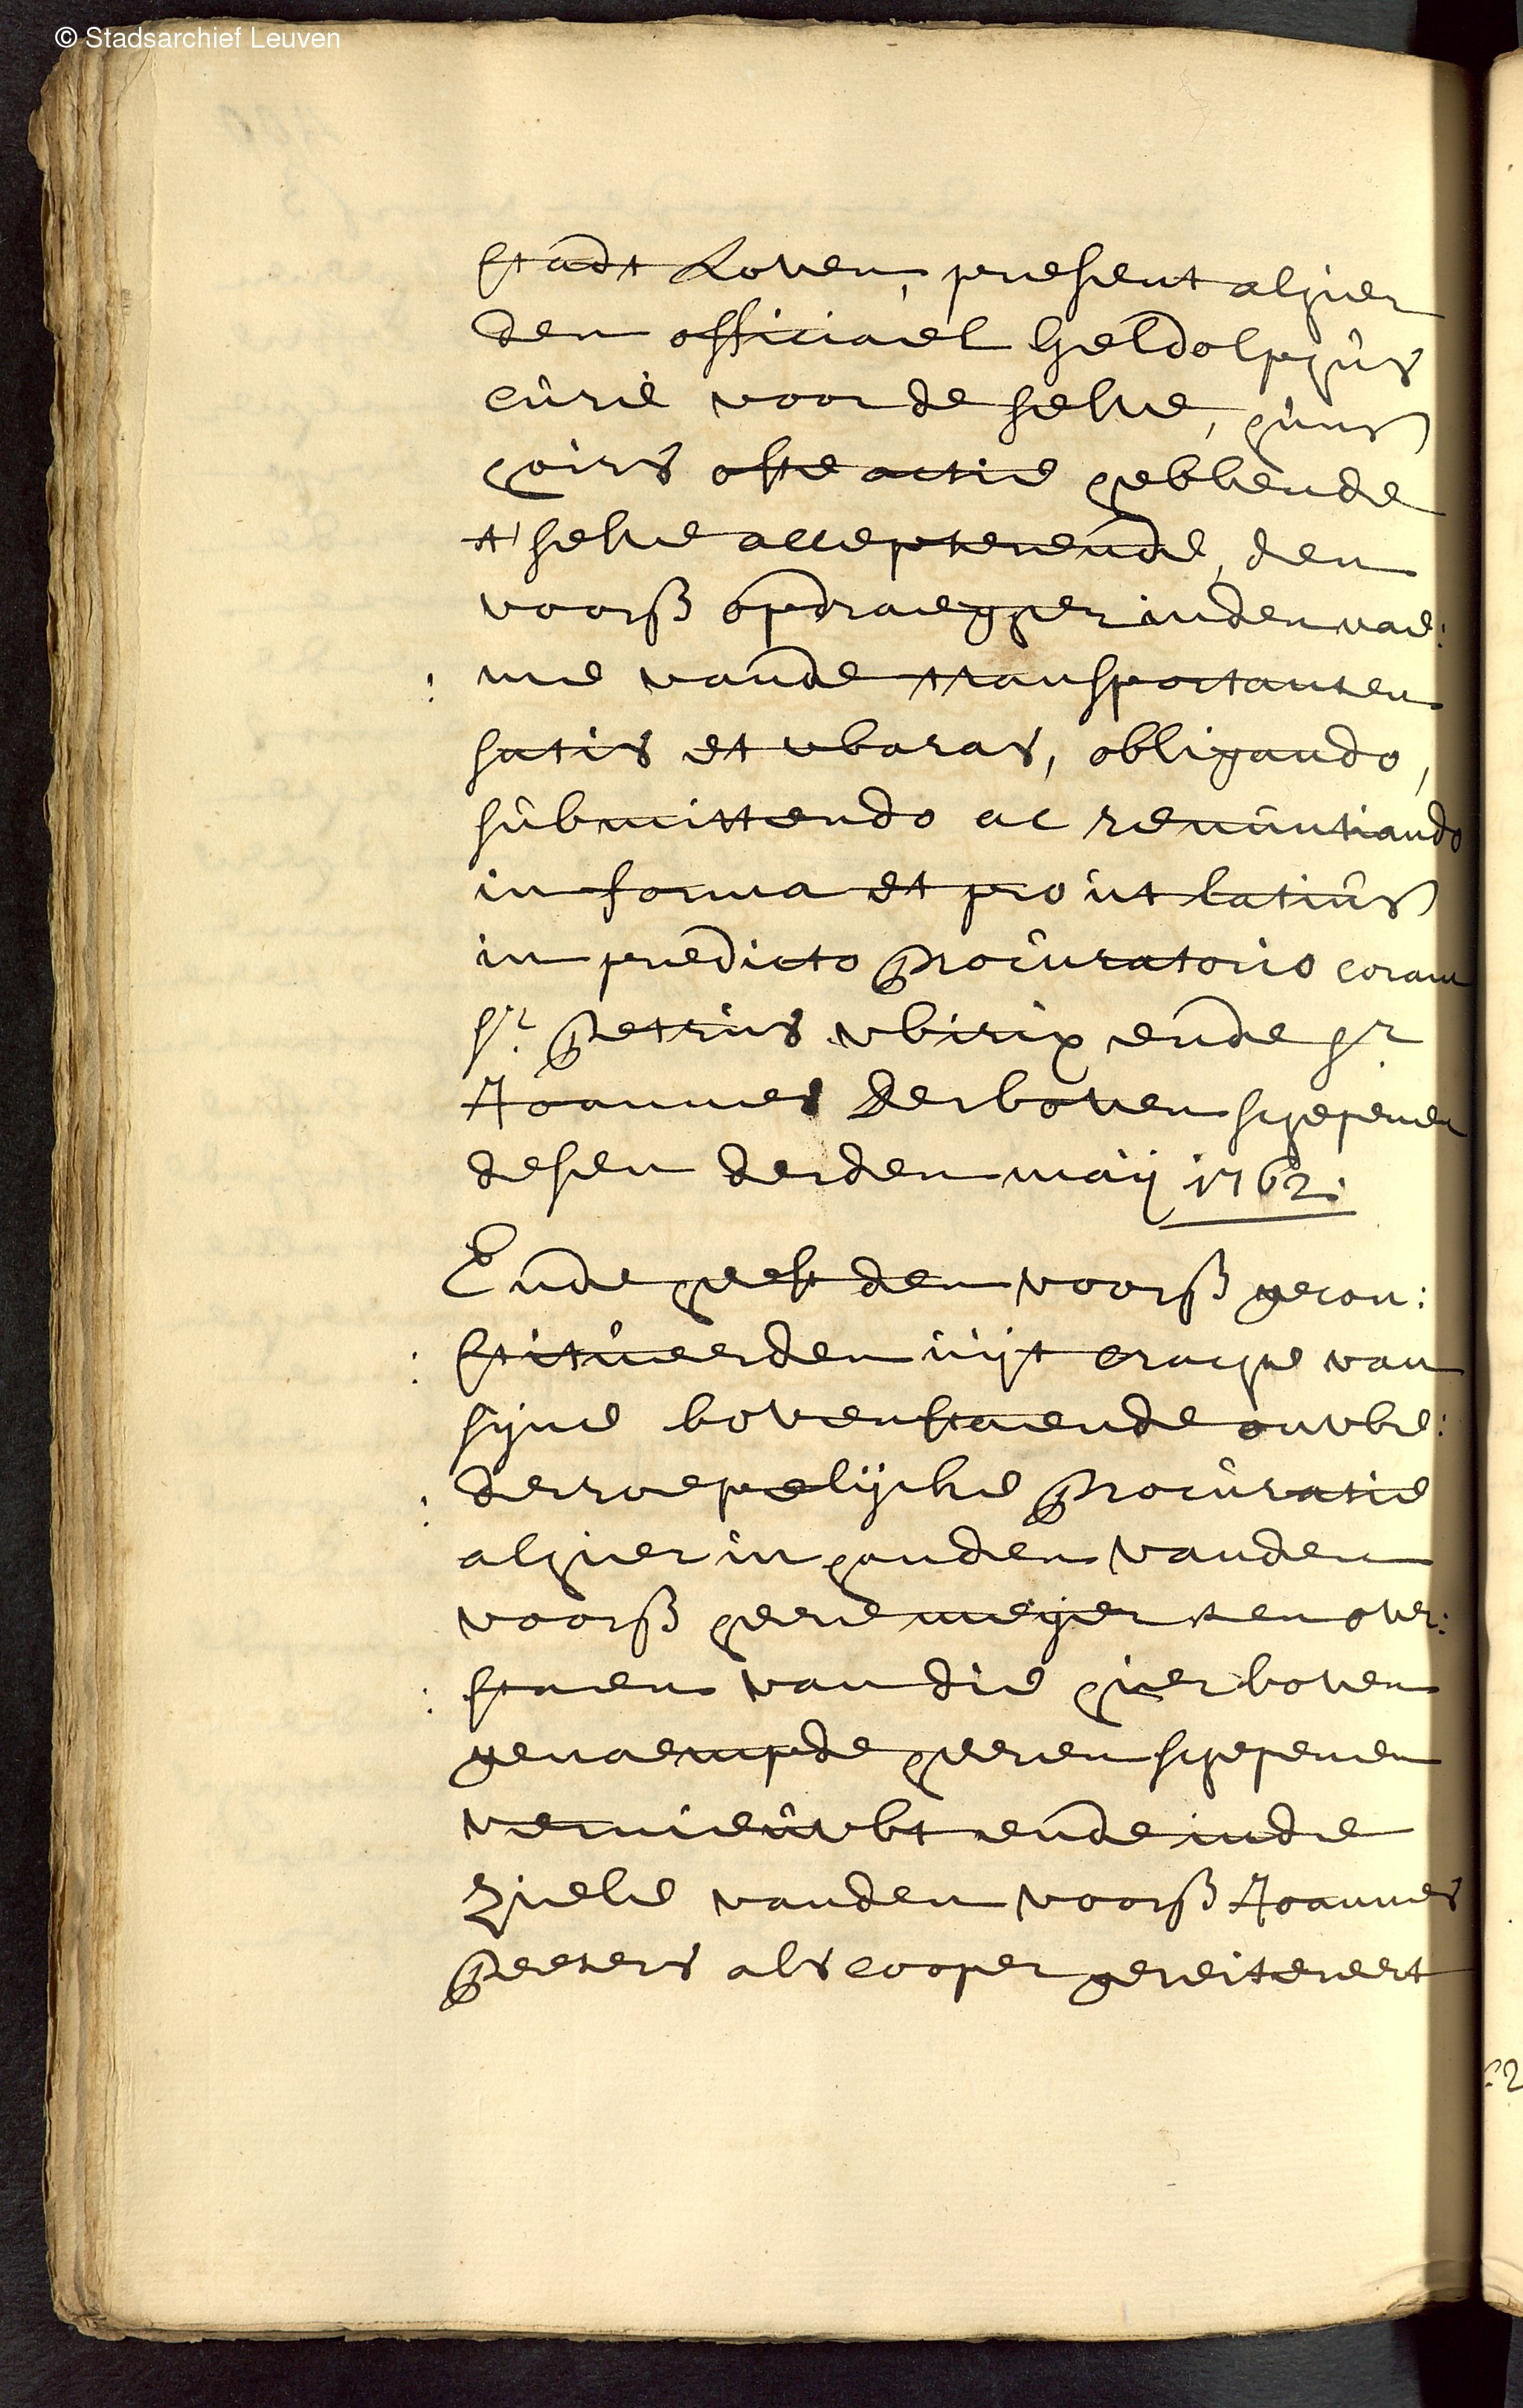 © Stadsarchief Leuven
stadt Loven, present alhier
den officiael Geldolphus
Curie voor de selve, hunß
hoirs ofte actie hebbende
t'selve accepterende, den
voorß opdraegher inden nae:
: me vande transportanten
satis et waras, obligando,
submittendo ac renuntiando
in forma et prout latiusß
in predicto Procuratorio coram
sr. Petrus Wirix ende sr.
Joannes Derboven schepenen
desen derden maij 1762.
Ende heeft den voorß gecon:
: stitueerden uijt crachte van
sijne bovenstaende onwe:
: derroepelijcke Procuratie
alhier in handen vanden
voorß heere meijer ten over:
: staen van die hier boven
genaempde heeren schepenen
vernieuwt ende inde
ziele vanden voorß Joannes
Peeters als cooper gereitereert